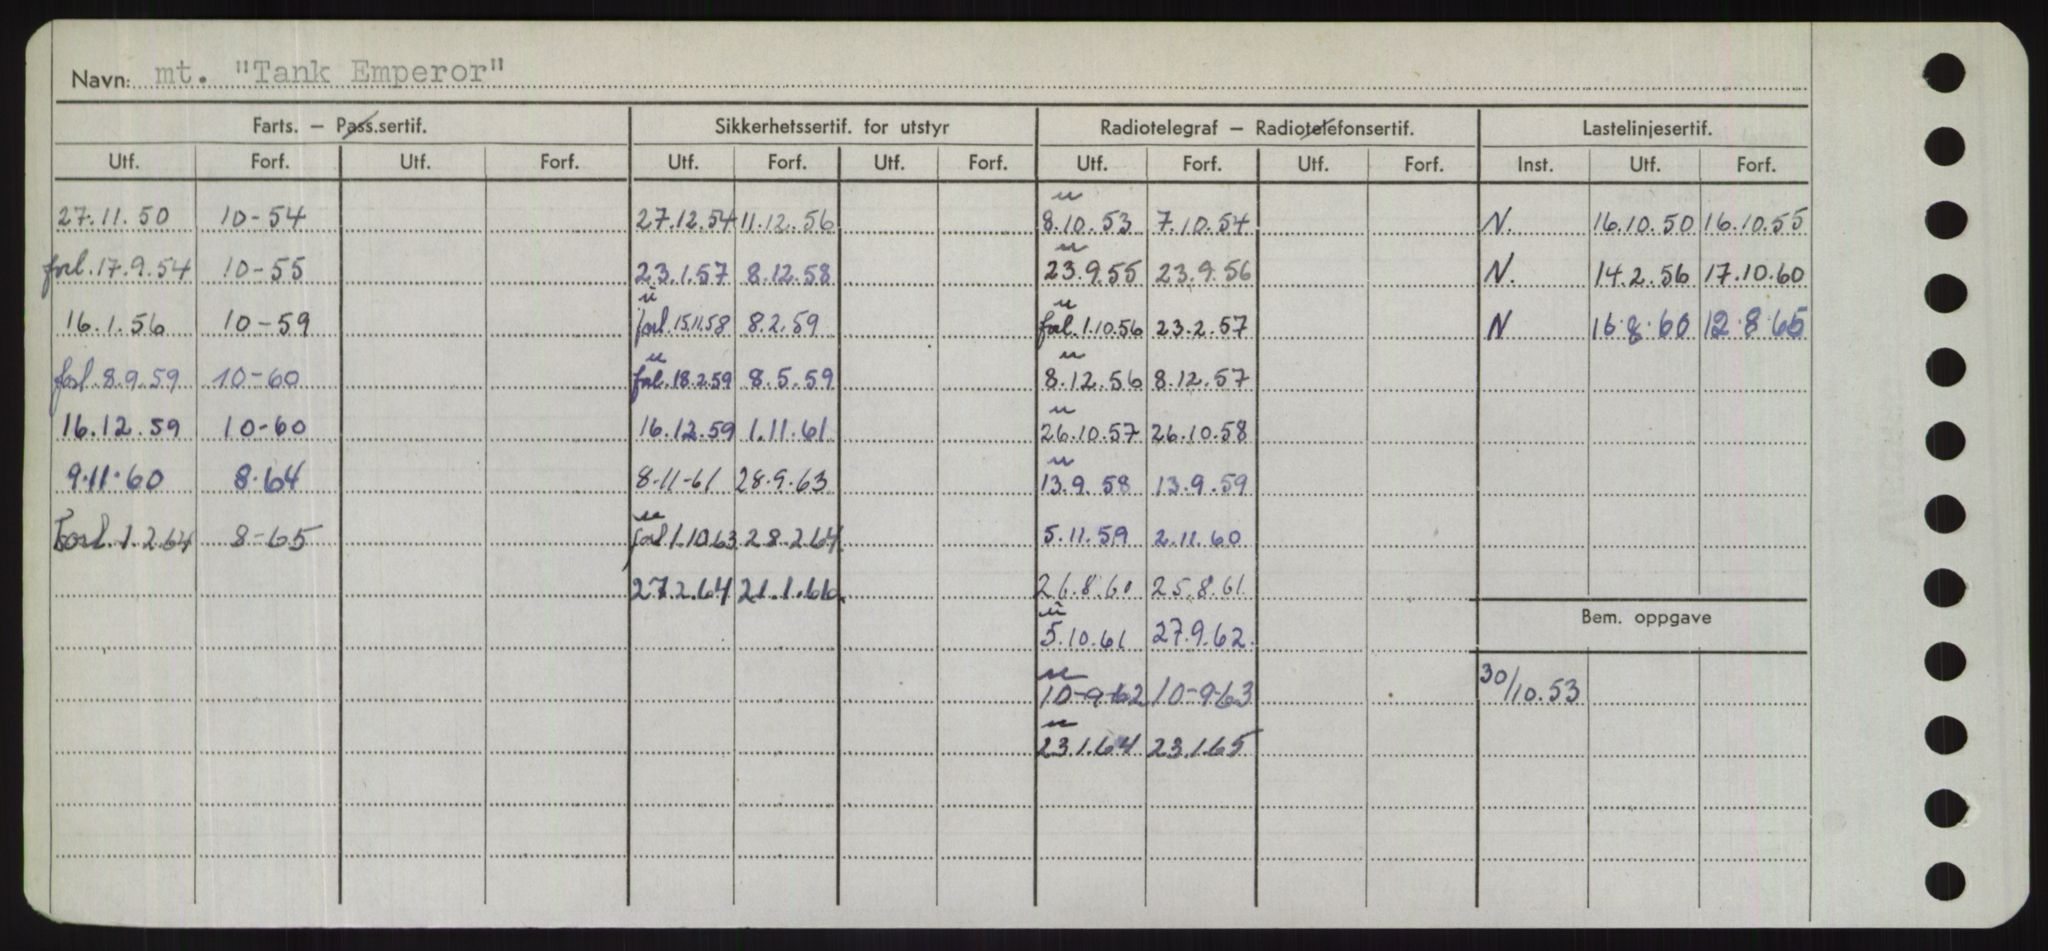 Navn: mt. "Tank Emperor"
Farts. – Pass.sertif. Sikkerhetssertif. for utstyr Radiotelegraf – Radiotelefonsertif. Lastelinjesertif.
Utf. Forf. Utf. Forf. Utf. Forf. Utf. Forf. Utf. Forf. Utf. Forf. Inst. Utf. Forf.
u
27.11.50 10-54 27.12.54 11.12.56 8.10.53 7.10.54 N. 16.10.50 16.10.55
u
forl.17.9.54 10-55 23.1.57 8.12.58 23.9.55 23.9.56 N. 14.2.56 17.10.60
u u
16.1.56 10-59 forl 15.11.58 8.2.59 forl.1.10.56 23.2.57 N 16.8.60 12.8.65
u u
forl.8.9.59 10-60 forl.18.2.59 8.5.59 8.12.56 8.12.57
u
16.12.59 10-60 16.12.59 1.11.61 26.10.57 26.10.58
u
9.11.60 8.64 8-11-61 28.9.63 13.9.58 13.9.59
u
Forl.1.2.64 8-65 forl 1.10.63 28.2.64. 5.11.59 2.11.60
27.2.64 21.1.66. 26.8.60 25.8.61
u
Bem. oppgave
5.10.61 27.9.62.
u
10-9-62 10-9-63 30/10.53
u
23.1.64 23.1.65